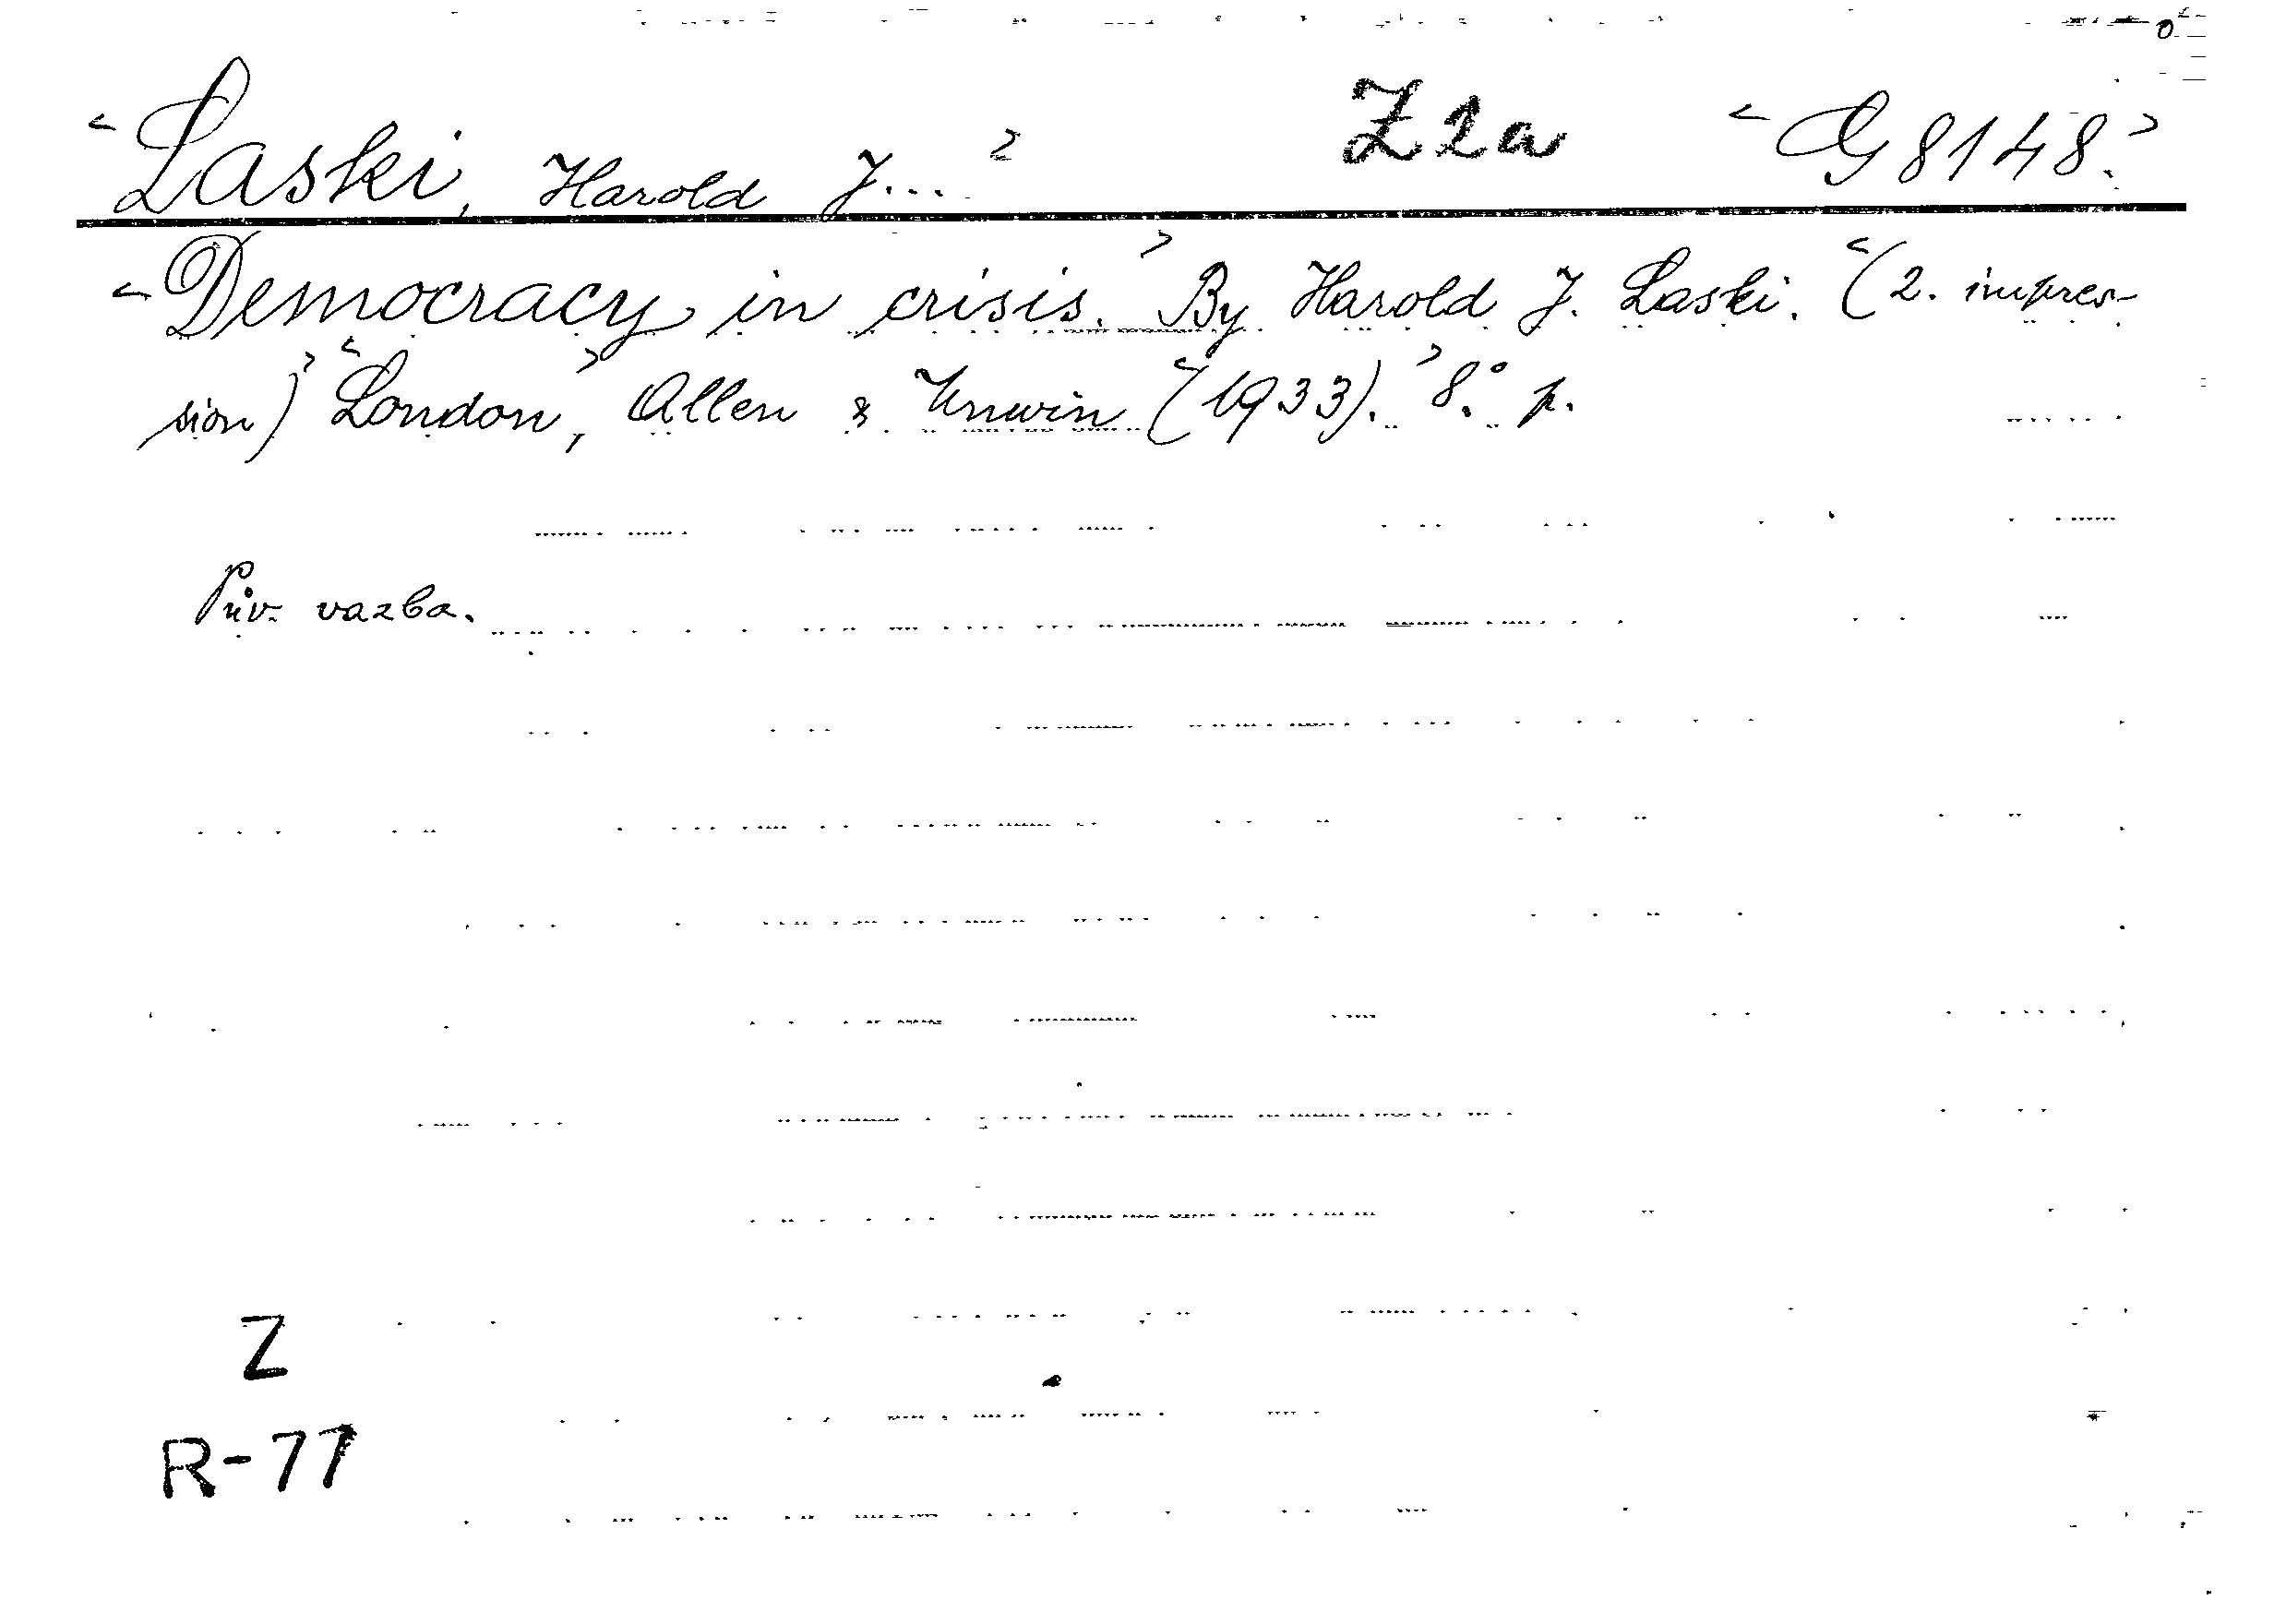 Laski, Harold J... Z2a G 8148.
Democracy in crisis. By Harold J. Laski. (2. impres-
sion) London, Allen & Unwin (1933). 8.° p.
Pův. vazba.
Z
R-77